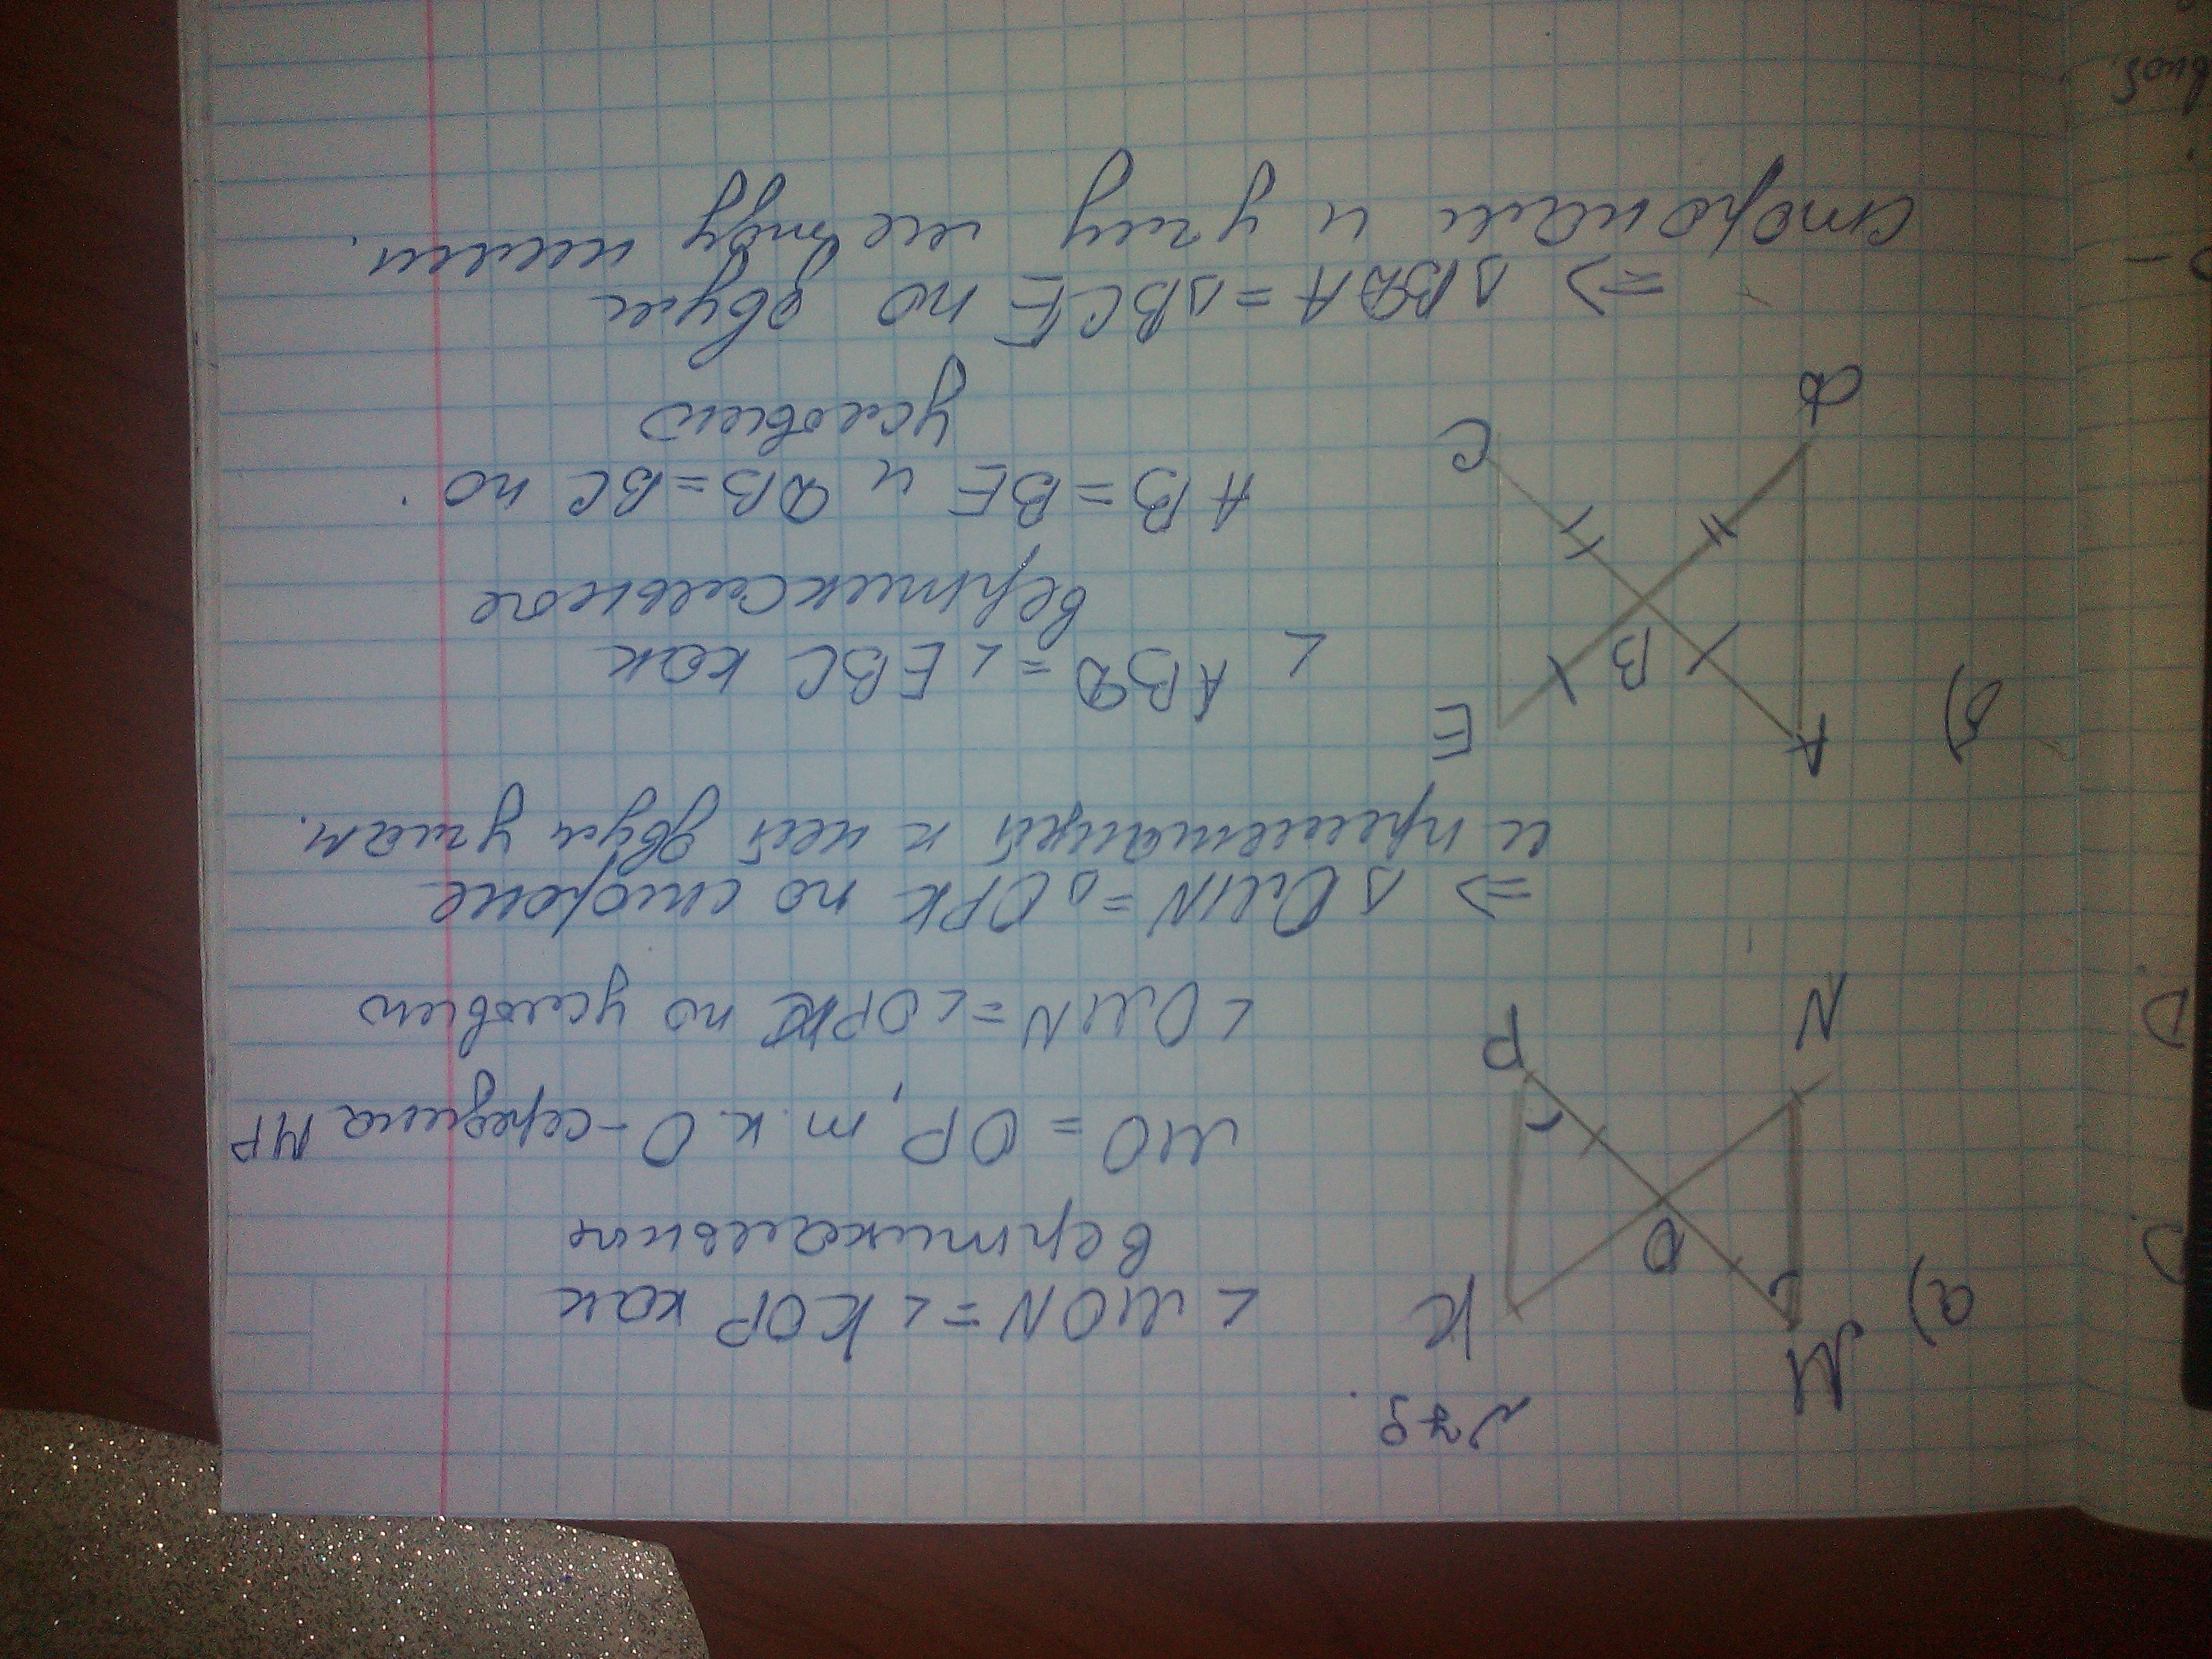 №79.
а)
M
K
O
N
P
∠MON = ∠KOP как
вертикальные
MO = OP, т.к. O - середина MP
∠OMN = ∠OPK по условию
=> ΔOMN = ΔOPK по стороне
и прилежащей к ней двум углам.
б)
A
E
B
D
C
∠ABD = ∠EBC как
вертикальные
AB = BE и DB = BC по
условию
=> ΔBDA = ΔBCE по двум
сторонам и углу между ними.